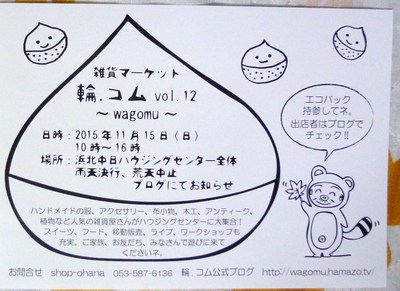 雑貨マーケット
輪.コム vol.12
~ wagomu ~
日時：2015年11月15日（日）
10時〜16時
場所：浜北中日ハウジングセンター全体
雨天決行、荒天中止
ブログにてお知らせ
ハンドメイドの服、アクセサリー、布小物、木工、アンティーク、
植物など人気の雑貨屋さんがハウジングセンターに大集合！
スイーツ、フード、移動販売、ライブ、ワークショップも
充実。ご家族、お友だち、みなさんで遊びに来て
くださいネ。
エコバック
持参してネ。
出店者はブログで
チェック!!
お問合せ shop-ohana 053-587-6136 輪.コム公式ブログ http://wagomu.hamazo.tv/